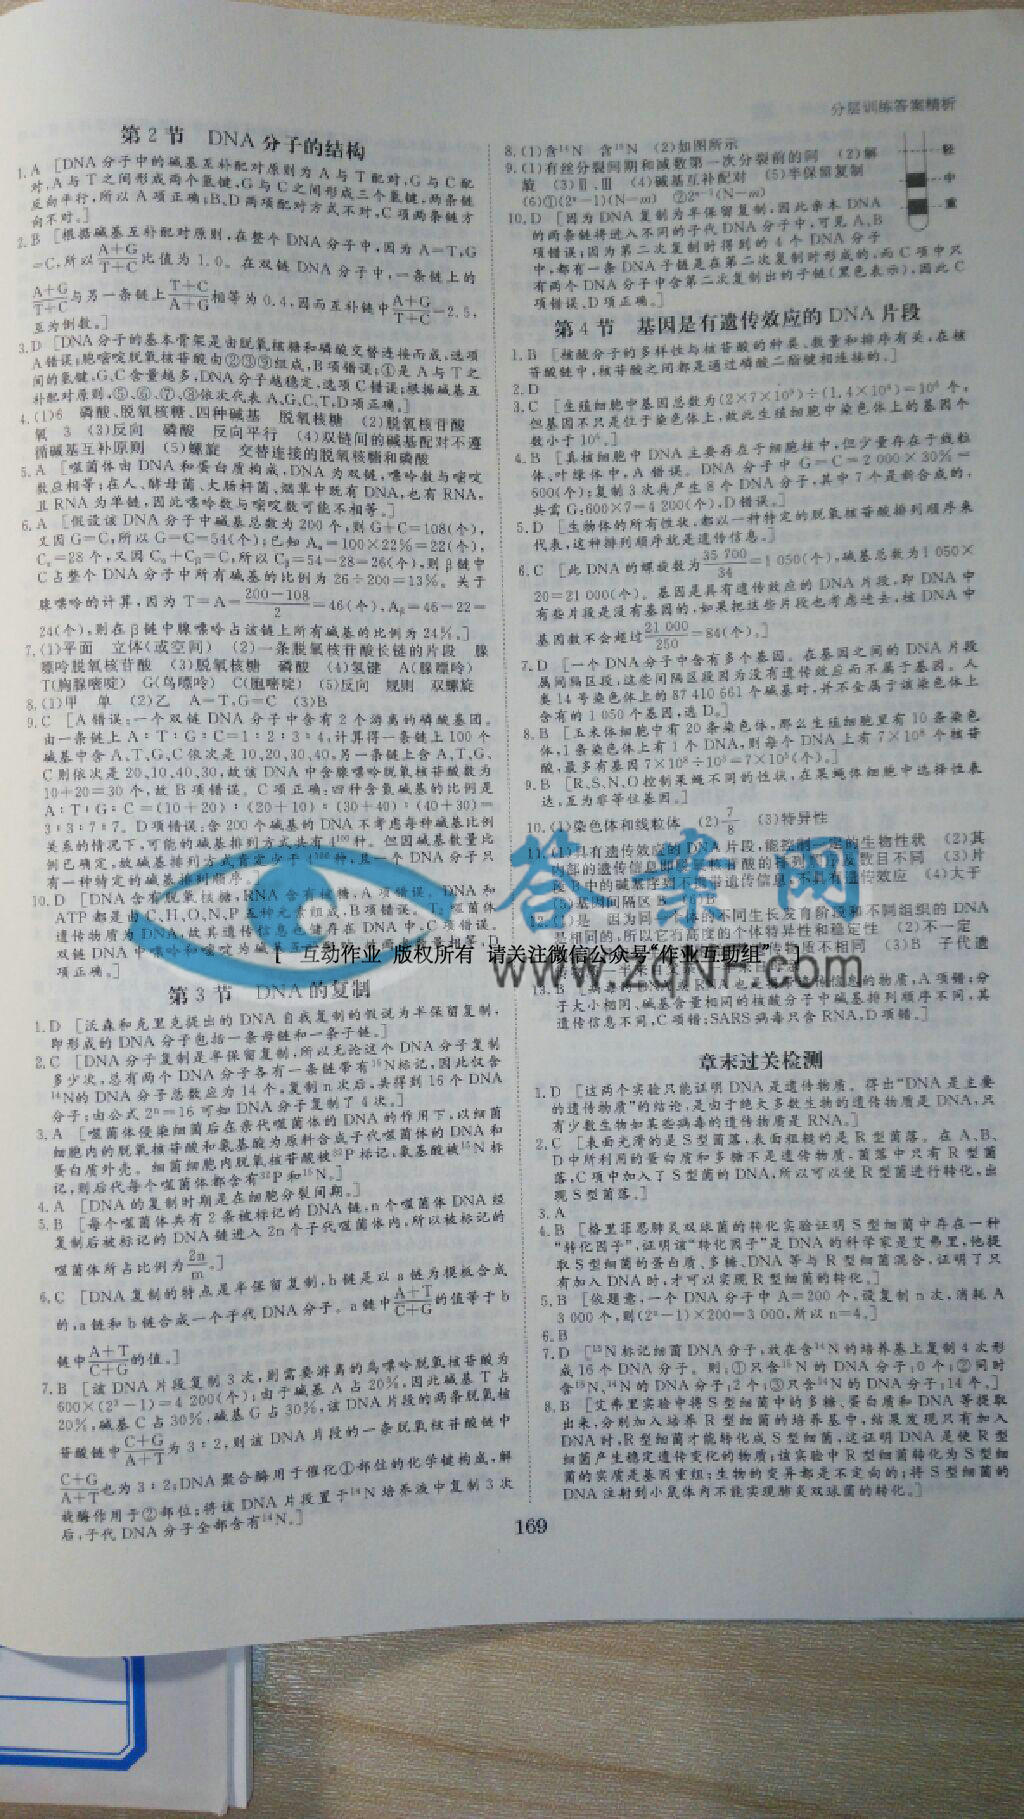 分层训练答案精析
第2节 DNA分子的结构
1.A [DNA分子中的碱基互补配对原则为A与T配对,G与C配
对,A与T之间形成两个氢键,G与C之间形成三个氢键,两条链
反向平行,所以A项正确;B、D两项配对方式不对,C项两条链方
向不对。]
2.B [根据碱基互补配对原则,在整个DNA分子中,因为A=T,G
=C,所以A+G/T+C比值为1.0。在双链DNA分子中,一条链上的
A+G/T+C与另一条链上T+C/A+G相等为0.4,因而互补链中A+G/T+C=2.5,
互为倒数。]
3.D [DNA分子的基本骨架是由脱氧核糖和磷酸交替连接而成,选项
A错误;胞嘧啶脱氧核苷酸由②③⑨组成,B项错误;①是A与T之
间的氢键,G、C含量越多,DNA分子越稳定,选项C错误;根据碱基互
补配对原则,⑤、⑥、⑦、⑧依次代表A、G、C、T,D项正确。]
4.(1)6 磷酸、脱氧核糖、四种碱基 脱氧核糖 (2)脱氧核苷酸
氧 3 (3)反向 磷酸 反向平行 (4)双链间的碱基配对不遵
循碱基互补原则 (5)螺旋 交替连接的脱氧核糖和磷酸
5.A [噬菌体由DNA和蛋白质构成,DNA为双链,嘌呤数与嘧啶
数总相等;在人、酵母菌、大肠杆菌、烟草中既有DNA,也有RNA,
且RNA为单链,因此嘌呤数与嘧啶数可能不相等。]
6.A [假设该DNA分子中碱基总数为200个,则G+C=108(个),
又因G=C,所以G=C=54(个);已知Aα=100×22%=22(个),
Cα=28个,又因Cα+Cβ=C,所以Cβ=54-28=26(个),则β链中
C占整个DNA分子中所有碱基的比例为26÷200=13%。关于
腺嘌呤的计算,因为T=A=200-108/2=46(个),Aβ=46-22=
24(个),则在β链中腺嘌呤占该链上所有碱基的比例为24%。]
7.(1)平面 立体(或空间) (2)一条脱氧核苷酸长链的片段 腺
嘌呤脱氧核苷酸 (3)脱氧核糖 磷酸 (4)氢键 A(腺嘌呤)
T(胸腺嘧啶) G(鸟嘌呤) C(胞嘧啶) (5)反向 规则 双螺旋
8.(1)甲 单 (2)乙 A=T,G=C (3)B
9.C [A错误:一个双链DNA分子中含有2个游离的磷酸基团。
由一条链上A∶T∶G∶C=1∶2∶3∶4,计算得一条链上100个
碱基中含A、T、G、C依次是10、20、30、40,另一条链上含A、T、G、
C则依次是20、10、40、30,故该DNA中含腺嘌呤脱氧核苷酸数为
10+20=30个,故B项错误。C项正确:四种含氮碱基的比例是
A∶T∶G∶C=(10+20)∶(20+10)∶(30+40)∶(40+30)=
3∶3∶7∶7。D项错误:含200个碱基的DNA不考虑每种碱基比例
关系的情况下,可能的碱基排列方式共有4¹⁰⁰种。但因碱基数量比
例已确定,故碱基排列方式肯定少于4¹⁰⁰种,且一个DNA分子只
有一种特定的碱基排列顺序。]
10.D [DNA含有脱氧核糖,RNA含有核糖,A项错误。DNA和
ATP都是由C、H、O、N、P五种元素组成,B项错误。T₂噬菌体
遗传物质为DNA,故其遗传信息也储存在DNA中,C项错误。
双链DNA中嘌呤和嘧啶为碱基互
项正确。]
第3节 DNA的复制
1.D [沃森和克里克提出的DNA自我复制的假说为半保留复制,
即形成的DNA分子包括一条母链和一条子链。]
2.C [DNA分子复制是半保留复制,所以无论这个DNA分子复制
多少次,总有两个DNA分子各有一条链带有¹⁵N标记,因此仅含
¹⁴N的DNA分子总数应为14个,复制n次后,共得到16个DNA
分子;由公式2ⁿ=16可知DNA分子复制了4次。]
3.A [噬菌体侵染细菌后在亲代噬菌体的DNA的作用下,以细菌
细胞内的脱氧核苷酸和氨基酸为原料合成子代噬菌体的DNA和
蛋白质外壳。细菌细胞内脱氧核苷酸被³²P标记,氨基酸被¹⁵N标
记,则后代每个噬菌体都含有³²P和¹⁵N。]
4.A [DNA的复制时期是在细胞分裂间期。]
5.B [每个噬菌体共有2条被标记的DNA链,n个噬菌体DNA经
复制后被标记的DNA链进入2n个子代噬菌体内,所以被标记的
噬菌体所占比例为2n/m。]
6.C [DNA复制的特点是半保留复制,b链是以a链为模板合成
的,a链和b链合成一个子代DNA分子。a链中A+T/C+G的值等于b
链中A+T/C+G的值。]
7.B [该DNA片段复制3次,则需要游离的鸟嘌呤脱氧核苷酸为
600×(2³-1)=4 200(个);由于碱基A占20%,因此碱基T占
20%,碱基C占30%,碱基G占30%,该DNA片段的两条脱氧核
苷酸链中C+G/A+T为3∶2,则该DNA片段的一条脱氧核苷酸链中
C+G/A+T也为3∶2;DNA聚合酶用于催化①部位的化学键构成,解
旋酶作用于②部位;将该DNA片段置于¹⁴N培养液中复制3次
后,子代DNA分子全部含有¹⁴N。]
8.(1)含¹⁴N 含¹⁵N (2)如图所示
轻
中
重
9.(1)有丝分裂间期和减数第一次分裂前的间 (2)解
旋 (3)Ⅱ、Ⅲ (4)碱基互补配对 (5)半保留复制
(6)①(2ⁿ-1)(N-m) ②2ⁿ⁻¹(N-m)
10.D [因为DNA复制为半保留复制,因此亲本DNA
的两条链将进入不同的子代DNA分子中,可见A、B
项错误;因为第二次复制时得到的4个DNA分子
中,都有一条DNA子链是在第二次复制时形成的,而C项中只
有两个DNA分子中含第二次复制出的子链(黑色表示),因此C
项错误、D项正确。]
第4节 基因是有遗传效应的DNA片段
1.B [核酸分子的多样性与核苷酸的种类、数量和排序有关,在核
苷酸链中,核苷酸之间都是通过磷酸二酯键相连接的。]
2.D
3.C [生殖细胞中基因总数为(2×7×10⁹)÷(1.4×10⁴)=10⁶个,
但基因不只是位于染色体上,故此生殖细胞中染色体上的基因个
数小于10⁶。]
4.B [真核细胞中DNA主要存在于细胞核中,但少量存在于线粒
体、叶绿体中,A错误。DNA分子中G=C=2 000×30%=
600(个);复制3次共产生8个DNA分子,其中7个是新合成的,
共需G:600×7=4 200(个),D错误。]
5.D [生物体的所有性状,都以一种特定的脱氧核苷酸排列顺序来
代表,这种排列顺序就是遗传信息。]
6.C [此DNA的螺旋数为35 700/34=1 050(个),碱基总数为1 050×
20=21 000(个)。基因是具有遗传效应的DNA片段,即DNA中
有些片段是没有基因的,如果把这些片段也考虑过去,该DNA中
基因数不会超过21 000/250=84(个)。]
7.D [一个DNA分子中含有多个基因。在基因之间的DNA片段
属间隔区段,这些间隔区段因为没有遗传效应而不属于基因。人
类14号染色体上的87 410 661个碱基对,并不全属于该染色体上
含有的1 050个基因,选D。]
8.B [玉米体细胞中有20条染色体,那么生殖细胞里有10条染色
体,1条染色体上有1个DNA,则每个DNA上有7×10⁸个核苷
酸,最多有基因7×10⁸÷10³=7×10⁵(个)。]
9.B [R、S、N、O控制果蝇不同的性状,在果蝇体细胞中选择性表
达,互为非等位基因。]
10.(1)染色体和线粒体 (2)7/8 (3)特异性
11.(1)具有遗传效应的DNA片段,能控制一定的生物性状 (2)其
内部的遗传信息即脱氧核苷酸的排列顺序及数目不同 (3)片
段B中的碱基序列不携带遗传信息,不具有遗传效应 (4)大于
(5)基因间隔区B (6)B
12.(1)是 因为同一个体的不同生长发育阶段和不同组织的DNA
是相同的,所以它有高度的个体特异性和稳定性 (2)不一定
质不相同 (3)B 子代遗
13.B [病毒的DNA或RNA也是携带遗传信息的物质,A项错;分
子大小相同、碱基含量相同的核酸分子中碱基排列顺序不同,其
遗传信息不同,C项错;SARS病毒只含RNA,D项错。]
章末过关检测
1.D [这两个实验只能证明DNA是遗传物质。得出“DNA是主要
的遗传物质”的结论,是由于绝大多数生物的遗传物质是DNA,只
有少数生物如某些病毒的遗传物质是RNA。]
2.C [表面光滑的是S型菌落,表面粗糙的是R型菌落。在A、B、
D中所利用的蛋白质和多糖不是遗传物质,菌落中只有R型菌
落,C项中加入了S型菌的DNA,所以可以使R型菌进行转化,出
现S型菌落。]
3.A
4.B [格里菲思肺炎双球菌的转化实验证明S型细菌中存在一种
“转化因子”,证明该“转化因子”是DNA的科学家是艾弗里,他提
取S型细菌的蛋白质、多糖、DNA等与R型细菌混合,证明了只
有加入DNA时,才可以实现R型细菌的转化。]
5.B [依题意,一个DNA分子中A=200个,设复制n次,消耗A
3 000个,则(2ⁿ-1)×200=3 000,所以n=4。]
6.B
7.D [¹⁵N标记细菌DNA分子,放在含¹⁴N的培养基上复制4次形
成16个DNA分子。则:①只含¹⁵N的DNA分子:0个;②同时
含¹⁵N、¹⁴N的DNA分子:2个;③只含¹⁴N的DNA分子:14个。]
8.B [艾弗里实验中将S型细菌中的多糖、蛋白质和DNA等提取
出来,分别加入培养R型细菌的培养基中,结果发现只有加入
DNA时,R型细菌才能转化成S型细菌,这证明DNA是使R型
细菌产生稳定遗传变化的物质;该实验中R型细菌转化为S型细
菌的实质是基因重组;生物的变异都是不定向的;将S型细菌的
DNA注射到小鼠体内不能实现肺炎双球菌的转化。]
169
答案网
www.zqnf.com
[ 互动作业 版权所有 请关注微信公众号“作业互助组” ]